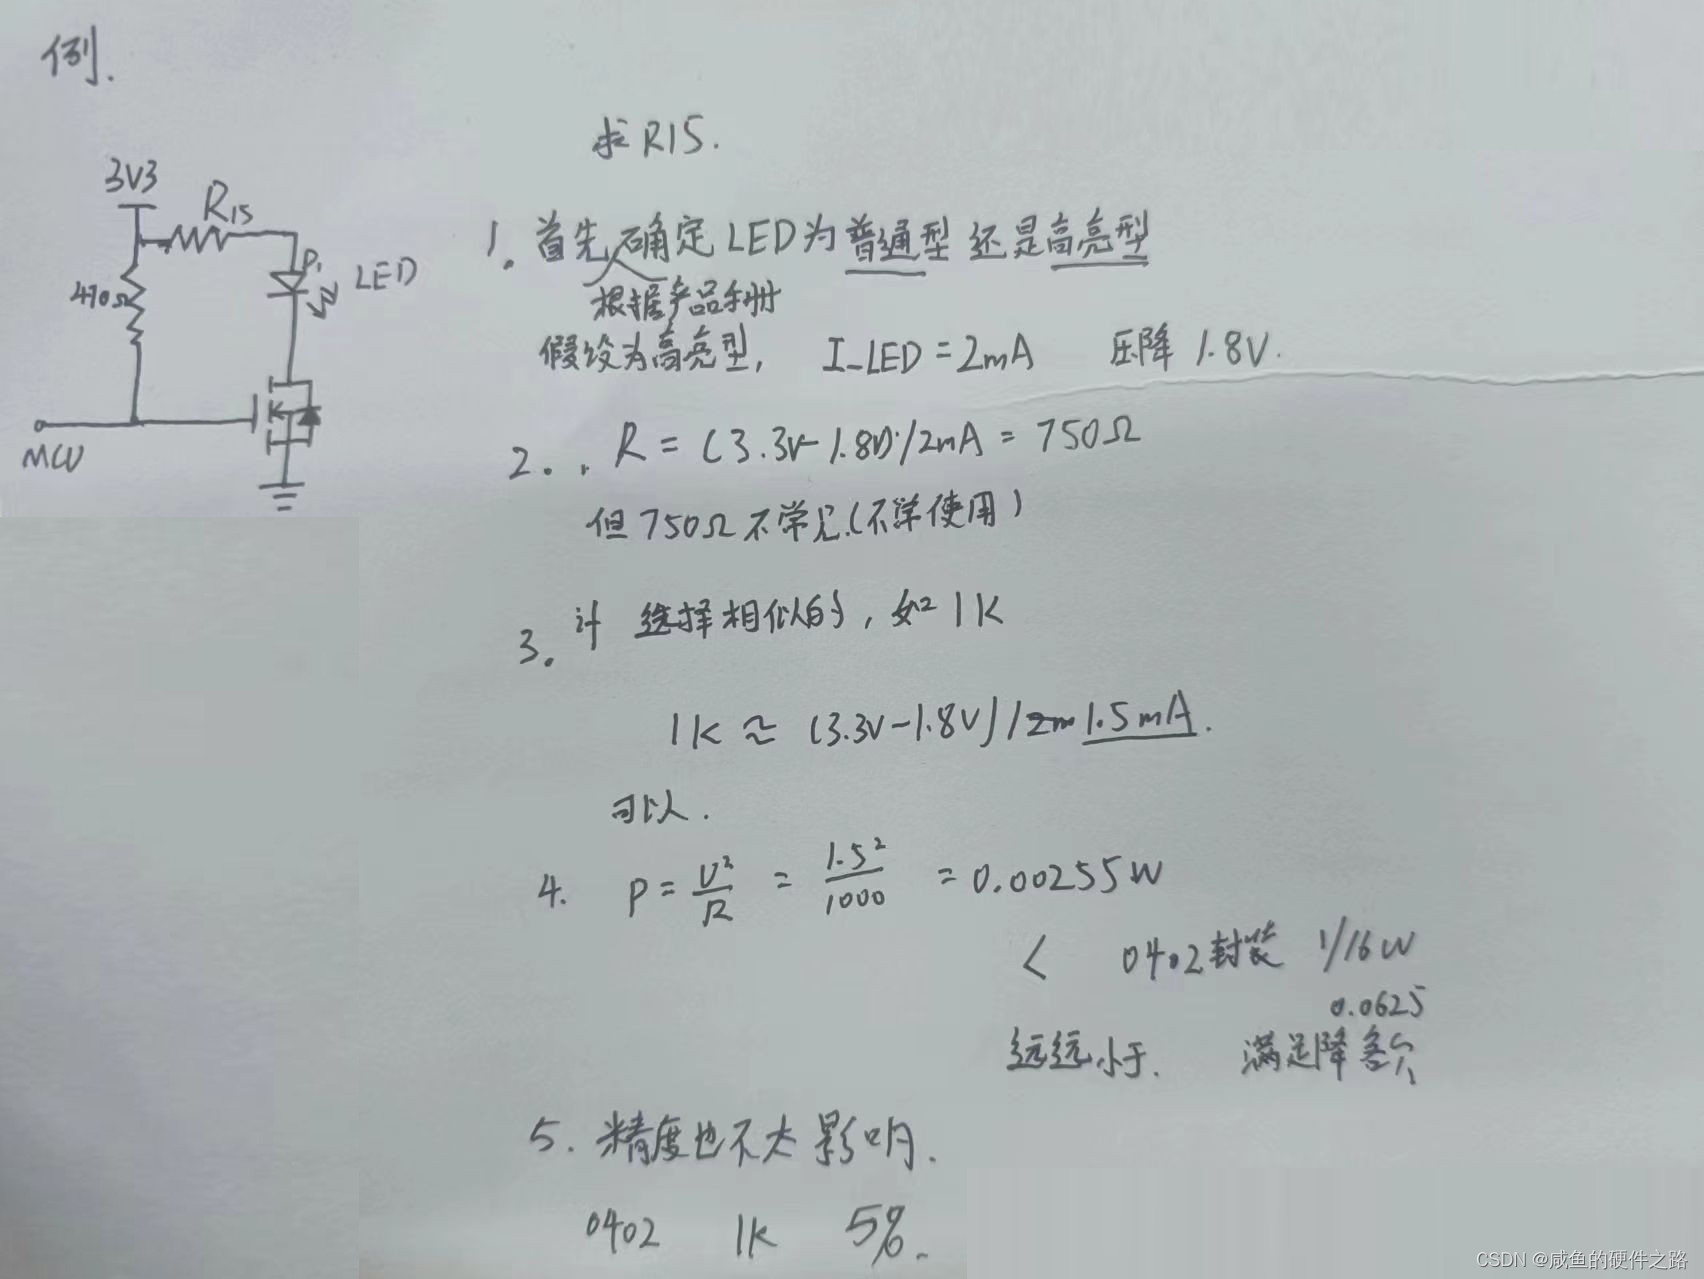 例.
求R15.
3V3
R15
470Ω
LED
MCU
1. 首先确定LED为普通型还是高亮型
根据产品手册
假设为高亮型, I_LED=2mA 压降 1.8V.
2. R=(3.3V-1.8V)/2mA=750Ω
但750Ω不常见(不常使用)
3. 选择相似的,如1K
1K≈(3.3V-1.8V)/1.5mA.
可以.
4. P=U²/R = 1.5²/1000 =0.00255W
< 0402封装 1/16W
0.0625
远远小于. 满足降额
5. 精度也不太影响.
0402 1K 5%.
CSDN @咸鱼的硬件之路